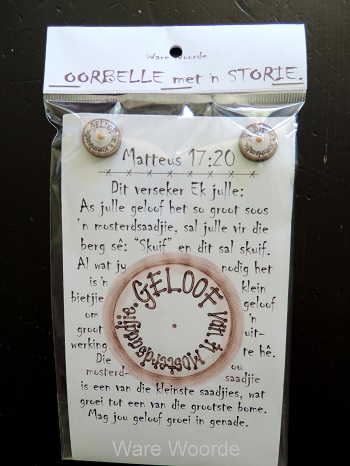 Ware Woorde
OORBELLE met 'n STORIE.
GELOOF
GELOOF
Matteus 17:20
Dit verseker Ek julle:
As julle geloof het so groot soos
'n mosterdsaadjie, sal julle vir die
berg sê: "Skuif" en dit sal skuif.
Al wat jy nodig het
is 'n klein
bietjie geloof
om 'n
groot uit-
werking te hê.
Die ou
mosterd- saadjie
GELOOF van 'n Mosterdsaadjie.
is een van die kleinste saadjies, wat
groei tot een van die grootste bome.
Mag jou geloof groei in genade.
Ware Woorde